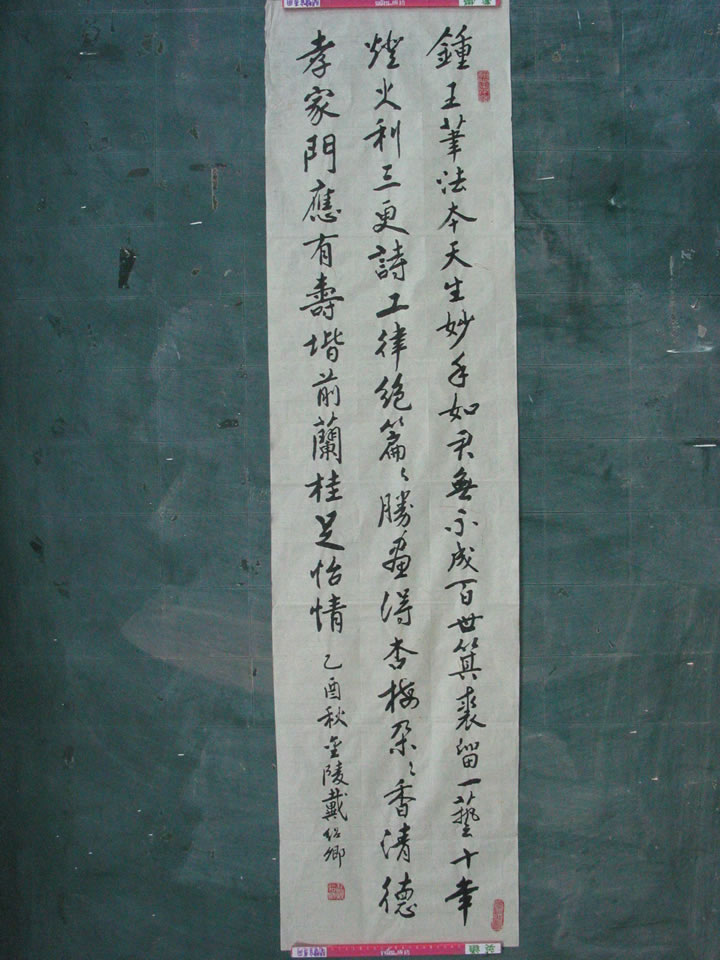 鍾王筆法本天生妙手如君無不成百世箕裘留一藝十年
燈火利三更詩工律絶篇〻勝畫得杏梅朶〻香清德
孝家門應有壽堦前蘭桂足怡情
乙酉秋金陵戴紹卿